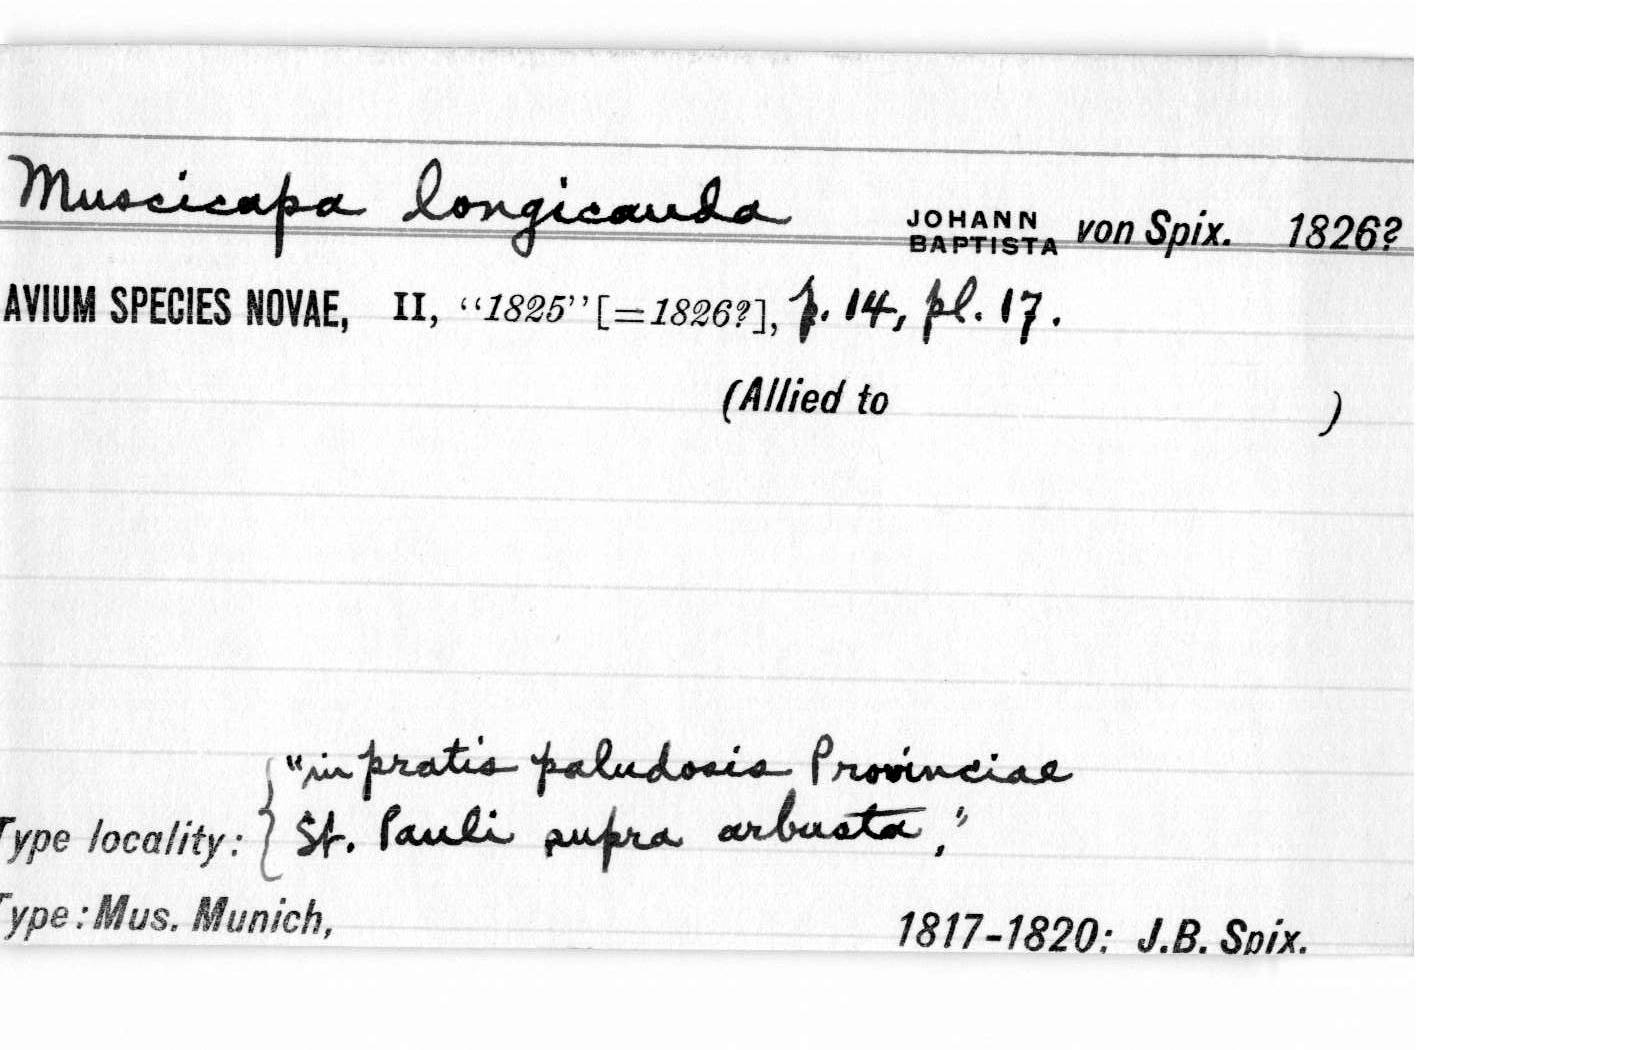 Muscicapa longicauda JOHANN BAPTISTA von Spix. 1826?
AVIUM SPECIES NOVAE, II, “1825” [=1826?], p. 14, pl. 17.
(Allied to )
"in pratis paludosis Provinciae
Type locality: { St. Pauli supra arbusta,"
Type: Mus. Munich, 1817-1820; J.B. Spix.